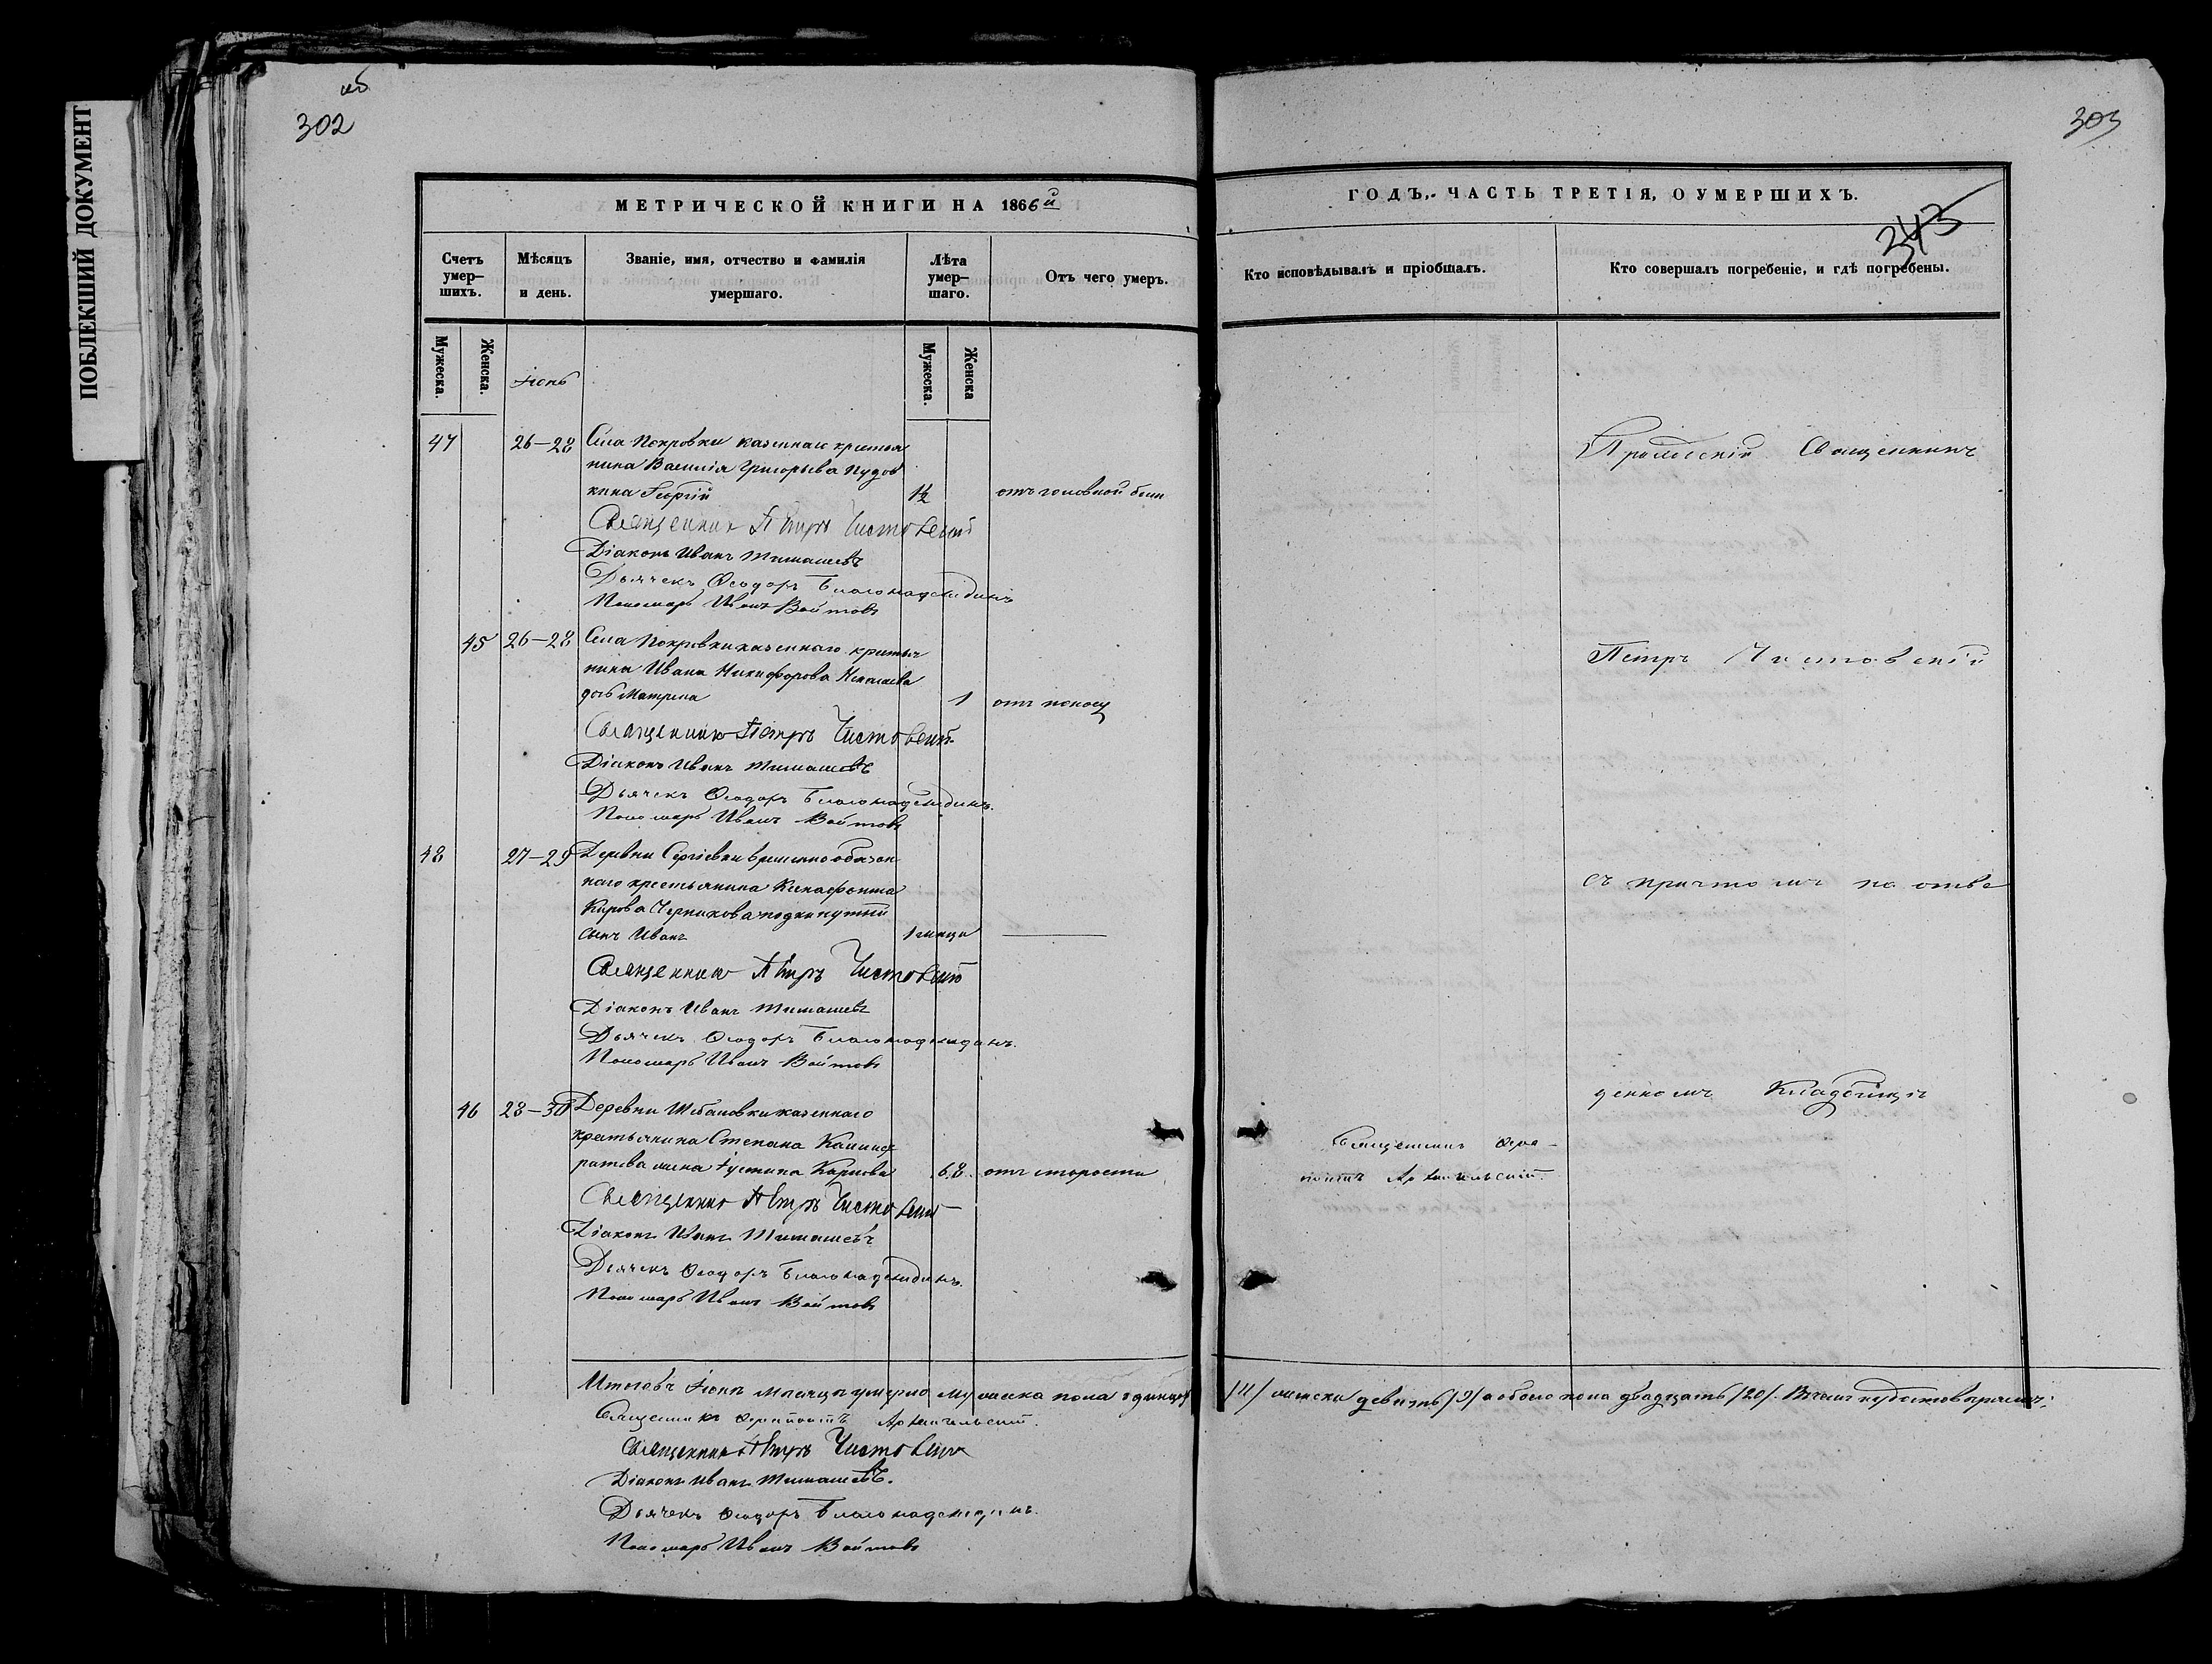 ПОБЛЕКШИЙ ДОКУМЕНТ
302
МЕТРИЧЕСКОЙ КНИГИ НА 1866й
Счетъ умер-шихъ.
Мѣсяцъ и день.
Званіе, имя, отчество и фамилія умершаго.
Лѣта умер-шаго.
Отъ чего умеръ.
Мужеска.
Женска.
Мужеска.
Женска
Іюнь
47 26-28 Села Покровки казеннаго крестья
нина Василія Григорьева Пудов
кина Георгій 1½ отъ головной боли
Священникъ Петръ Чистовскій
Діаконъ Иванъ Тимашевъ
Дьячекъ Ѳеодоръ Благонадеждинъ
Пономарь Иванъ Войтовъ
45 26-28 Села Покровки казеннаго крестья
нина Ивана Никифорова
дочь Матрена 1 отъ поносу
Священникъ Петръ Чистовскій
Діаконъ Иванъ Тимашевъ
Дьячекъ Ѳеодоръ Благонадеждинъ.
Пономарь Иванъ Войтовъ
48 27-29 Деревни Сергіевки временно обязан
наго крестьянина Ксенофонта
Кирова Черникова подкинутый
сынъ Иванъ 1 месяца
Священникъ Петръ Чистовскій
Діаконъ Иванъ Тимашевъ
Дьячекъ Ѳеодоръ Благонадеждинъ.
Пономарь Иванъ Войтовъ
46 28-30 Деревни казеннаго
крестьянина Степана
жена Іустина Карпова 68. отъ старости
Священникъ Петръ Чистовскій
Діаконъ Иванъ Тимашевъ
Дьячекъ Ѳеодоръ Благонадеждинъ.
Пономарь Иванъ Войтовъ
Итого въ Іюнѣ месяцѣ умерло мужеска пола одинцать
Священникъ Архангельскій.
Священникъ Петръ Чистовскій
Діаконъ Иванъ Тимашевъ.
Дьячекъ Ѳеодоръ Благонадеждинъ.
Пономарь Иванъ Войтовъ
303
ГОДЪ, ЧАСТЬ ТРЕТІЯ, О УМЕРШИХЪ.
343
Кто исповѣдывалъ и пріобщалъ.
Кто совершалъ погребеніе, и гдѣ погребены.
Священникъ
Петръ Чистовскій
съ причтомъ на отве
денномъ Кладбищѣ
Священникъ
Архангельскій.
/11/ женска девять /9/ а обоего пола двадцать /20/.